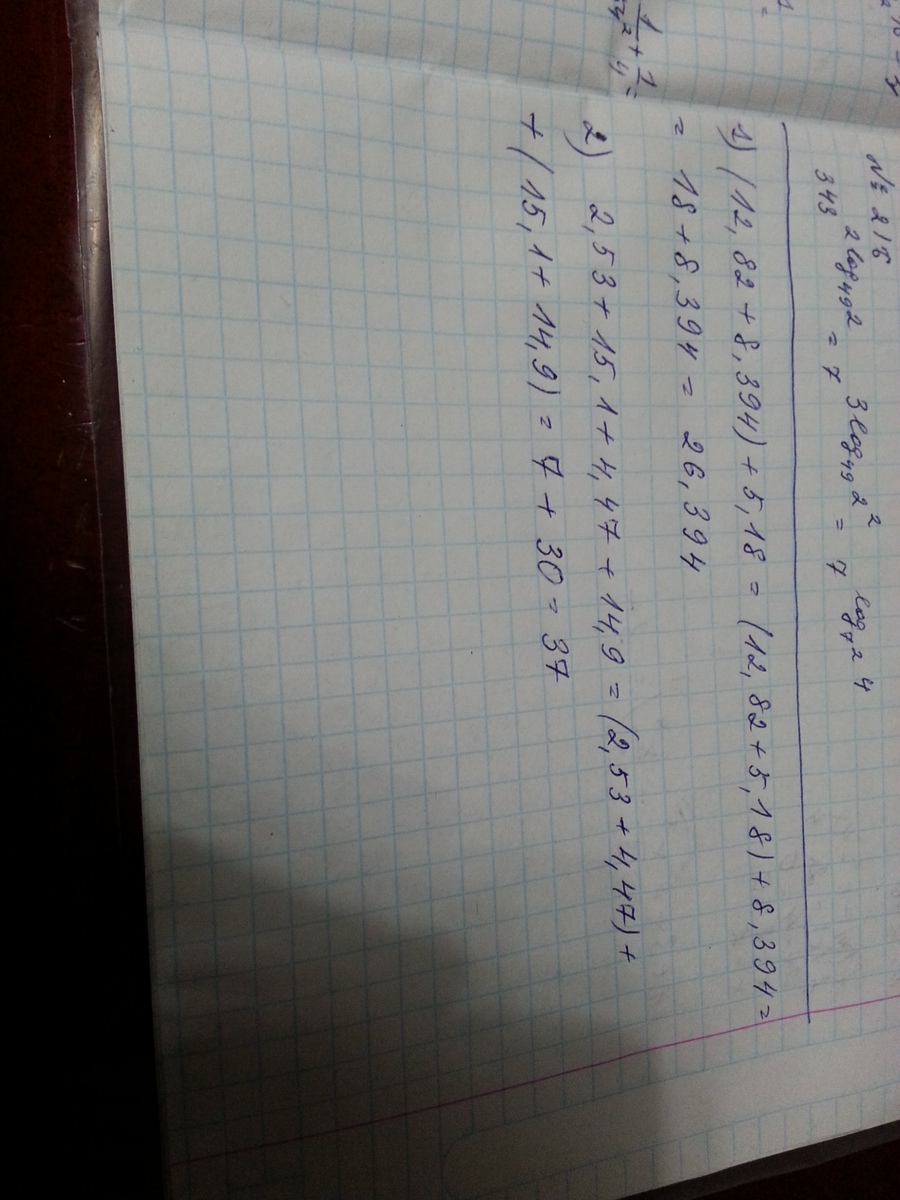 № 218
343^{2log_{49}2} = 7^{3log_{49}2^2} = 7^{log_{7^2}4}
1) (12,82 + 8,394) + 5,18 = (12,82 + 5,18) + 8,394 =
= 18 + 8,394 = 26,394
2) 2,53 + 15,1 + 4,47 + 14,9 = (2,53 + 4,47) +
+ (15,1 + 14,9) = 7 + 30 = 37